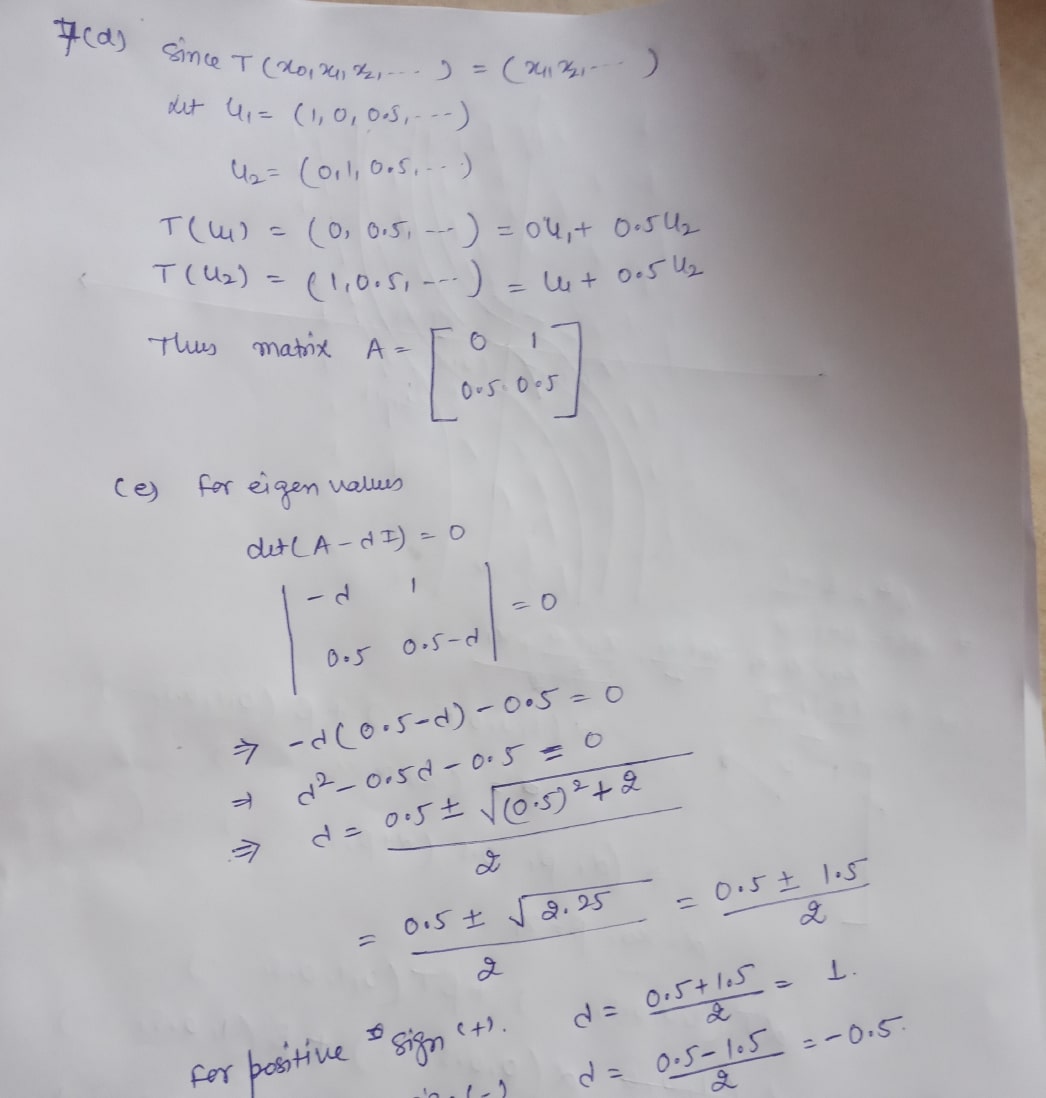 7(d) Since T(x₀, x₁, x₂, ---) = (x₁, x₂, ---)
let u₁ = (1, 0, 0.5, ---)
u₂ = (0, 1, 0.5, ---)
T(u₁) = (0, 0.5, ---) = 0u₁ + 0.5 u₂
T(u₂) = (1, 0.5, ---) = u₁ + 0.5 u₂
Thus matrix A = [ 0 1
0.5 0.5 ]
(e) for eigen values
det(A - dI) = 0
| -d 1
0.5 0.5-d | = 0
⇒ -d(0.5-d) - 0.5 = 0
⇒ d² - 0.5d - 0.5 = 0
⇒ d = 0.5 ± √(0.5)² + 2 / 2
= 0.5 ± √2.25 / 2 = 0.5 ± 1.5 / 2
for positive sign (+). d = 0.5+1.5 / 2 = 1.
(-) d = 0.5-1.5 / 2 = -0.5.